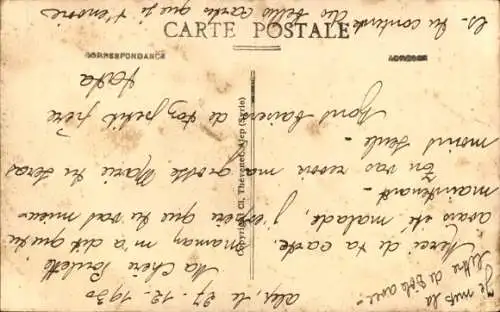 CARTE POSTALE
CORRESPONDANCE
ADRESSE
Copyright Cl. Thévenet, Alep (Syrie)
Alep, le 27-12-1930
Ma chère Paulette
maman m'a dit que tu
avais été malade, j'espère que tu vas mieux
maintenant.
Merci de ta carte.
Tu vas revoir ma grosse Marie tu seras
moins seule.
Mons baisers de ton petit frère
Toto
Je mets la
lettre de Zolo avec
es tu contente des belles cartes que je t'envoie